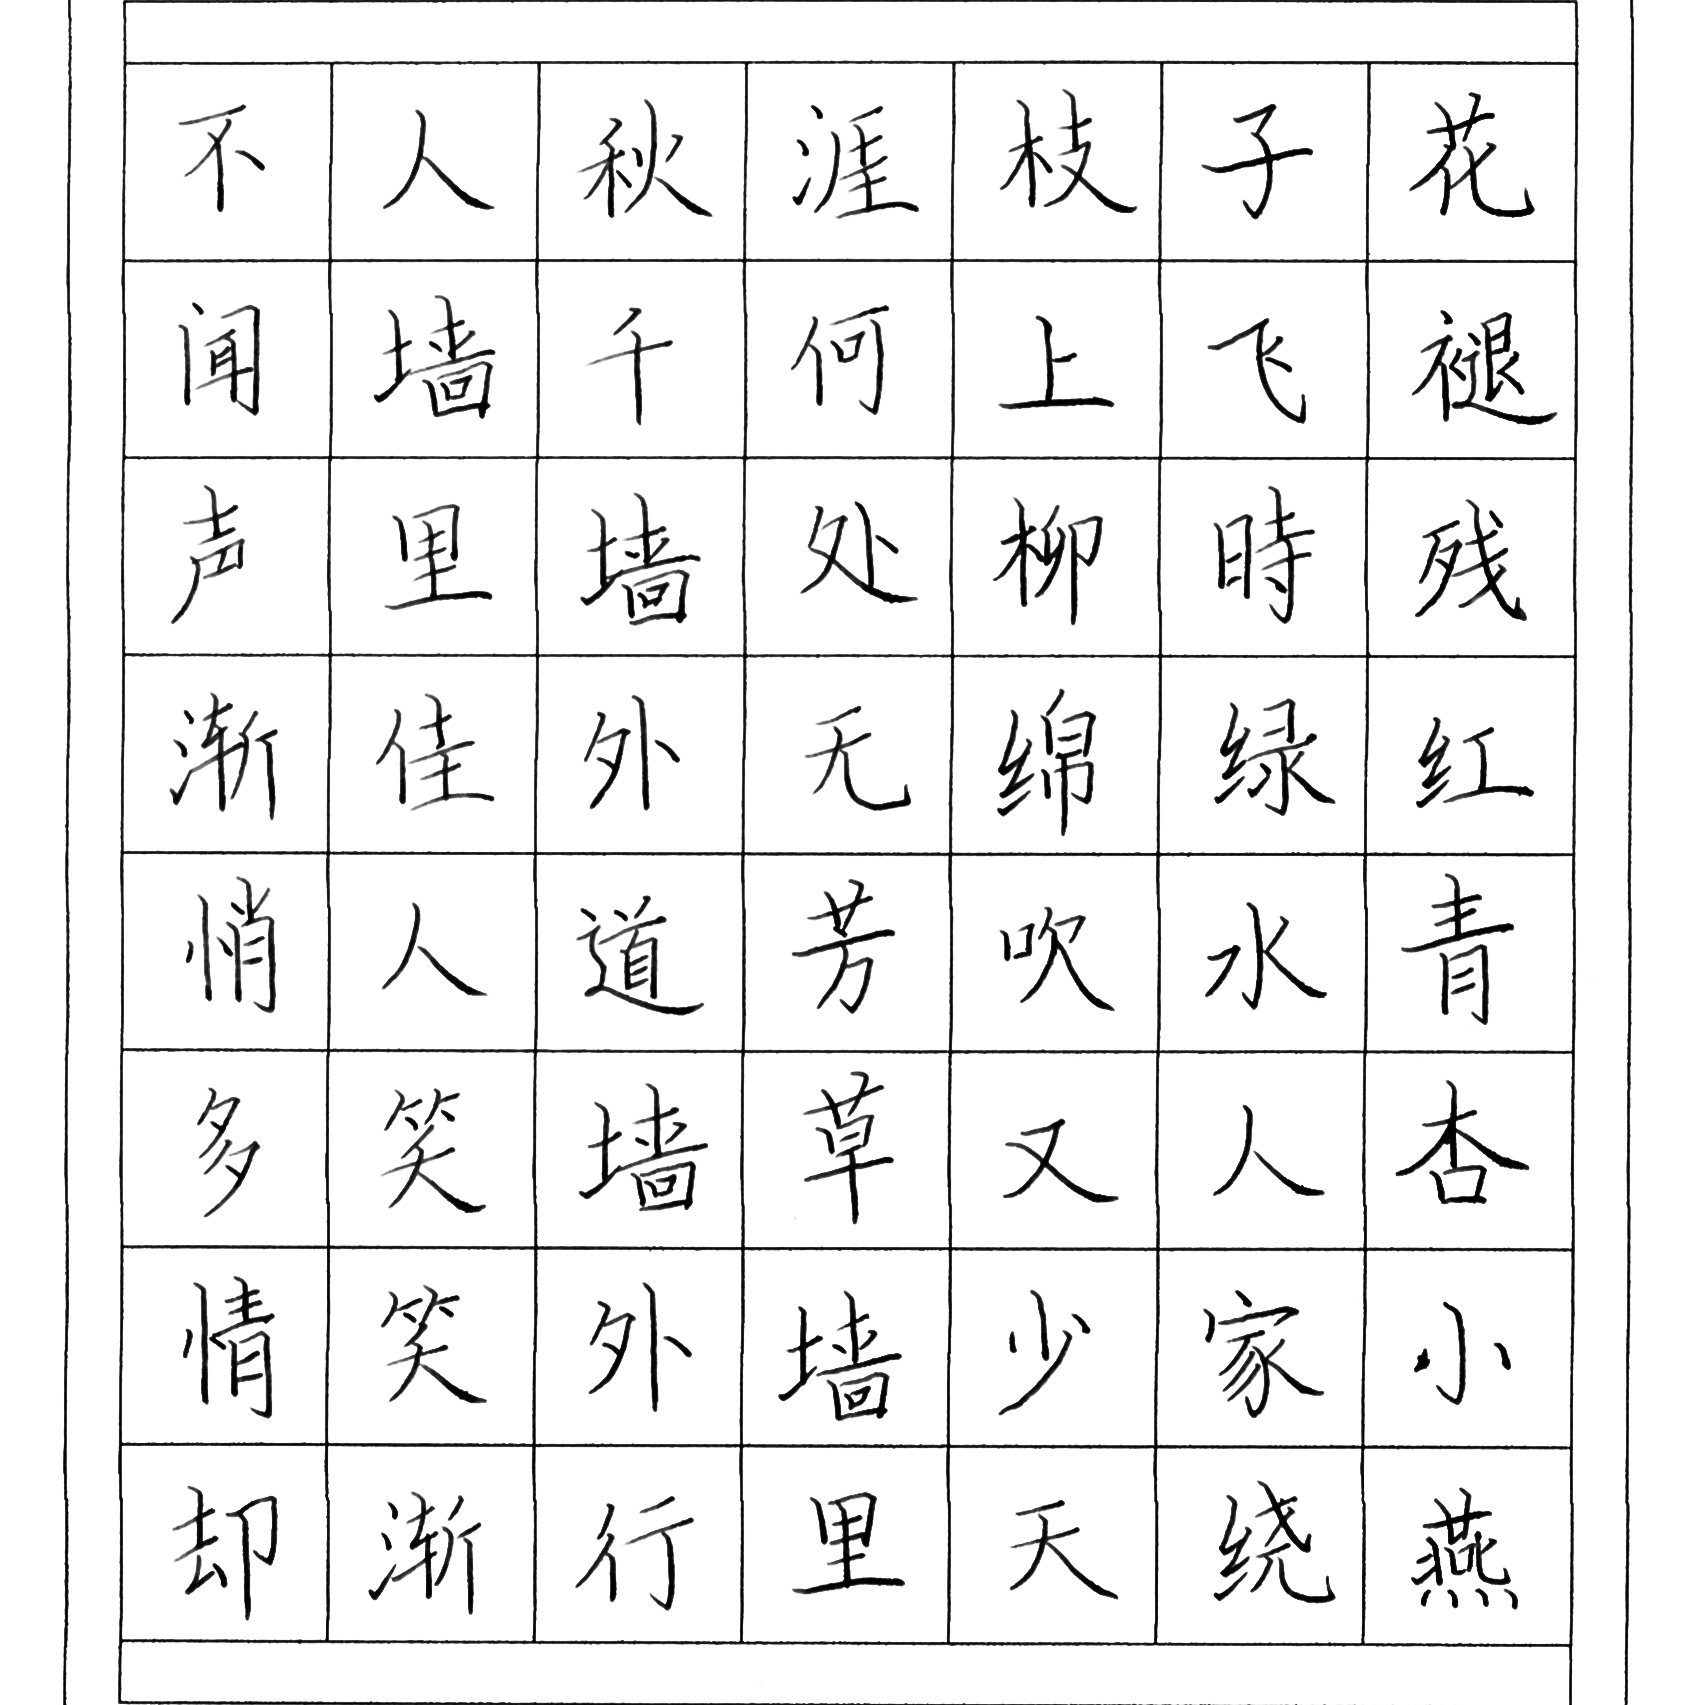 花褪残红青杏小燕
子飞時绿水人家绕
枝上柳绵吹又少天
涯何处无芳草墙里
秋千墙外道墙外行
人墙里佳人笑笑渐
不闻声渐悄多情却